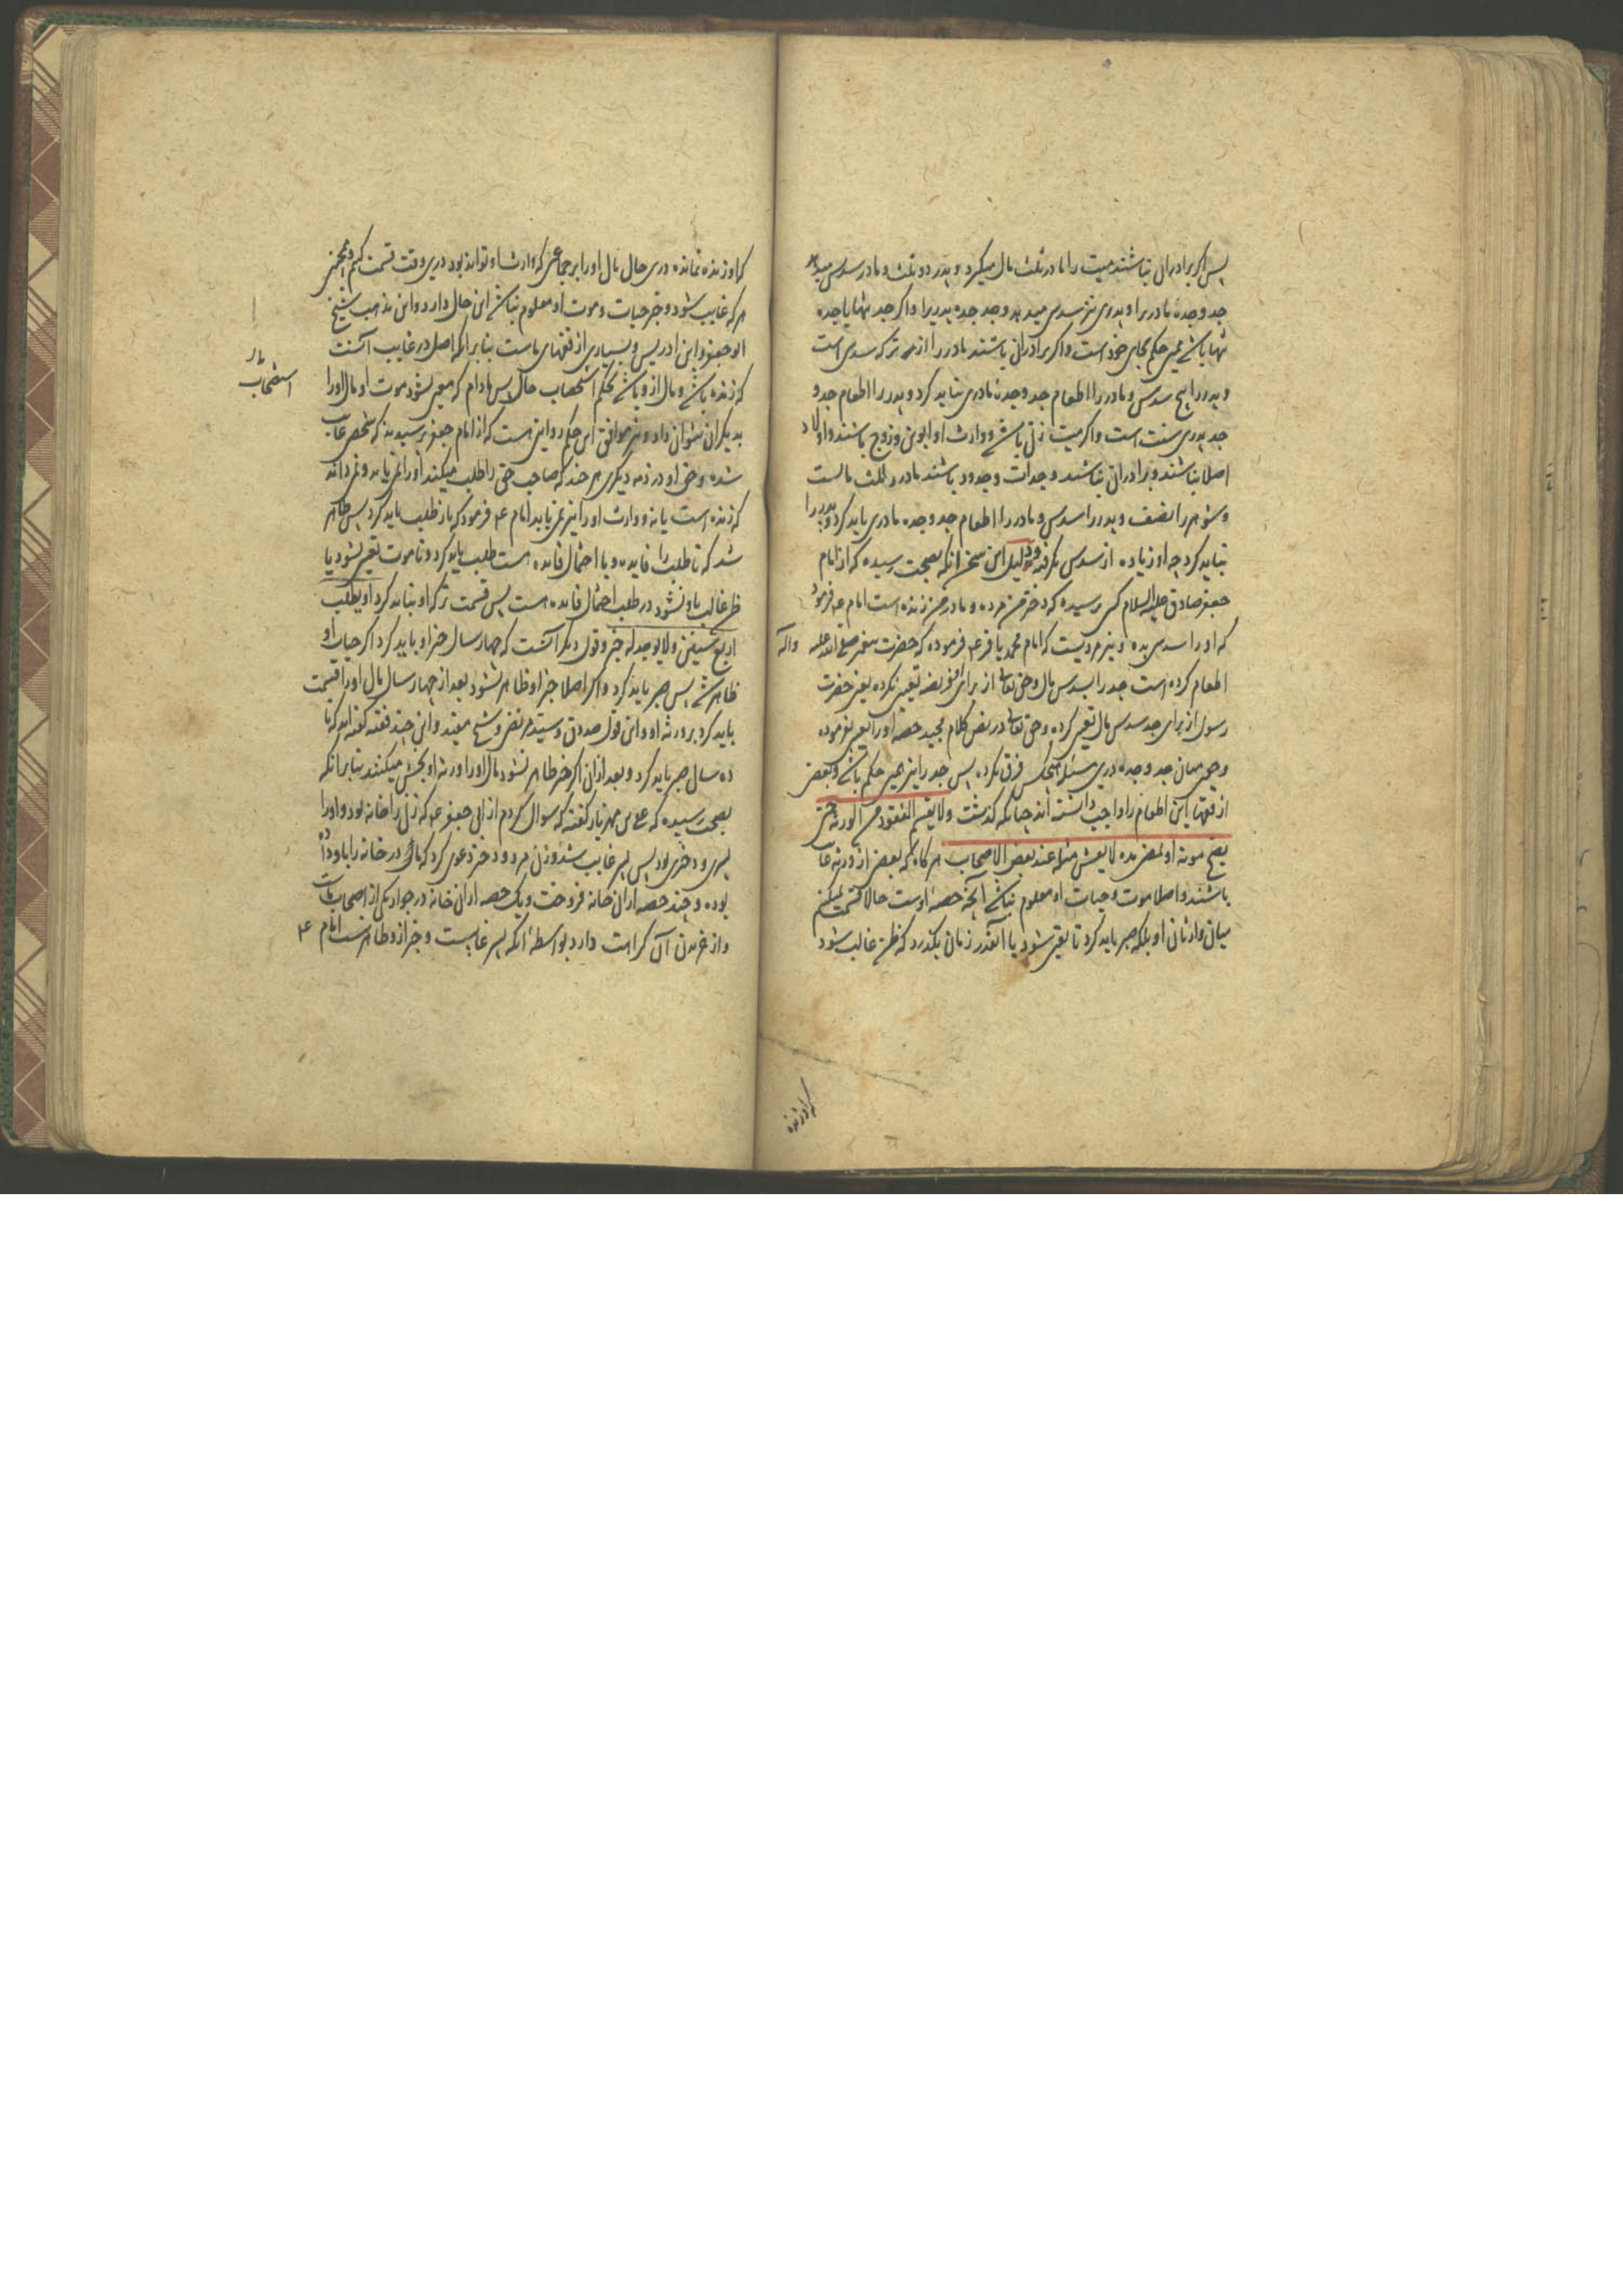 پس اگر برادران نباشند میت را مادر ثلث مال میگیرد و پدر دو ثلث و مادر سدس میدهد
جد و جدهٔ مادریرا و پدری نیز سدس میدهد جد و جده پدریرا و اگر جد تنها یا جده
تنها باشد همین حکم بجای خود است و اگر برادران باشند مادر را از ترکه سدس است
و پدر را پنج سدس و مادر را اطعام جد و جدهٔ مادری نباید کرد و پدر را اطعام جد و
جده پدری سنت است و اگر میت زنی باشد و وارث او ابوین و زوج باشند و اولاد
اصلا نباشند و برادران نباشند و جدات و جدود باشند مادر را ثلث مالست
و شوهر را نصف و پدر را سدس و مادر را اطعام جد و جده مادری باید کرد و پدر را
نباید کرد چه او زیاده از سدس نگرفته و دلیل این سخن آنکه بصحت رسیده که از امام
جعفر صادق علیه السلام کسی پرسیده که دختر من مرده و مادر من زنده است امام ع فرمود
که او را سدس بده و نیز مرویست که امام محمد باقر ع فرموده که حضرت پیغمبر صلی الله علیه وآله
اطعام کرده است جد را بسدس مال و حق تعالی از برای او فریضه تعیین نکرده یعنی حضرت
رسول از برای جد سدس مال تعیین کرده و حق تعالی در نص کلام مجید حصه او را تعیین نفرموده
و چون میان جد و جده درین مسئله هیچکس فرق نکرده پس جد را نیز همین حکم باشد و بعضی
از فقها این اطعام را واجب دانسته اند چنانکه گذشت ولا یقسم المفقود من الورثه حتی
یصح موته او یمضی مده لا یعیش مثله عند بعض الاصحاب هر گاه که بعضی از ورثه غایب
باشند و اصلا موت و حیات او معلوم نباشد آنچه حصهٔ اوست حالا قسمت نمیکنیم
میان وارثان او بلکه صبر باید کرد تا یقین شود یا آنقدر زمان بگذرد که ظن غالب شود
که او زنده
که او زنده نمانده درین حال مال او را بر جماعتی که وارث او توانند بود درین وقت قسمت کنیم و همچنین
هر که غایب شود و خبر حیات و موت او معلوم نباشد این حال دارد و این مذهب شیخ
ابو جعفر و ابن ادریس و بسیاری از فقهای ماست بنابر آنکه اصل در غایب آنست
که زنده باشد و مال از او باشد بحکم استصحاب حال پس مادام که معین نشود موت او مال او را
استصحاب
بدیگران نتوان داد و نیز موافق این حکم روایتی است که از امام جعفر پرسیدند که شخصی غایب
شده و حق او در ذمه دیگری هر چند که صاحب حق را طلب میکند او را نمی یابد و نمیداند
که زنده است یا نه و وارث او را نیز نمی یابد امام ع فرمود که باز طلب باید کرد پس ظاهر
شد که تا طلب را فایده و یا احتمال فایده هست طلب باید کرد و تا موت یقین نشود یا
ظن غالب باو نشود در طلب احتمال فایده است پس قسمت ترکه او نباید کرد او یطلب
اربع سنین ولا یوجد له خبر و قول دیگر آنست که چهار سال خبر او باید کرد اگر حیات او
ظاهر شد پس صبر باید کرد و اگر اصلا خبر او ظاهر نشود بعد از چهار سال مال او را قسمت
باید کرد بر ورثه او و این قول صدوق و سید مرتضی و شیخ مفید و ابن جنید فقیه گفته اند که تا
ده سال صبر باید کرد و بعد از آن اگر خبر ظاهر نشود مال او را ورثه او بخش میکنند بنابر آنکه
بصحت رسیده که علی بن مهزیار گفته که سوال کردم از ابی جعفر ع که زنی را خانه بود و او را
پسری و دختری بود پس پسر غایب شد و زن مرد و دختر دعوی کرد که مادر خانه را باو داده
بوده و چند حصه از آن خانه فروخت و یک حصه از آن خانه در جوار یکی از اصحاب ماست
و از خریدن آن کراهت دارد بواسطهٔ آنکه پسر غایبست و خبر از او ظاهر نیست امام ع